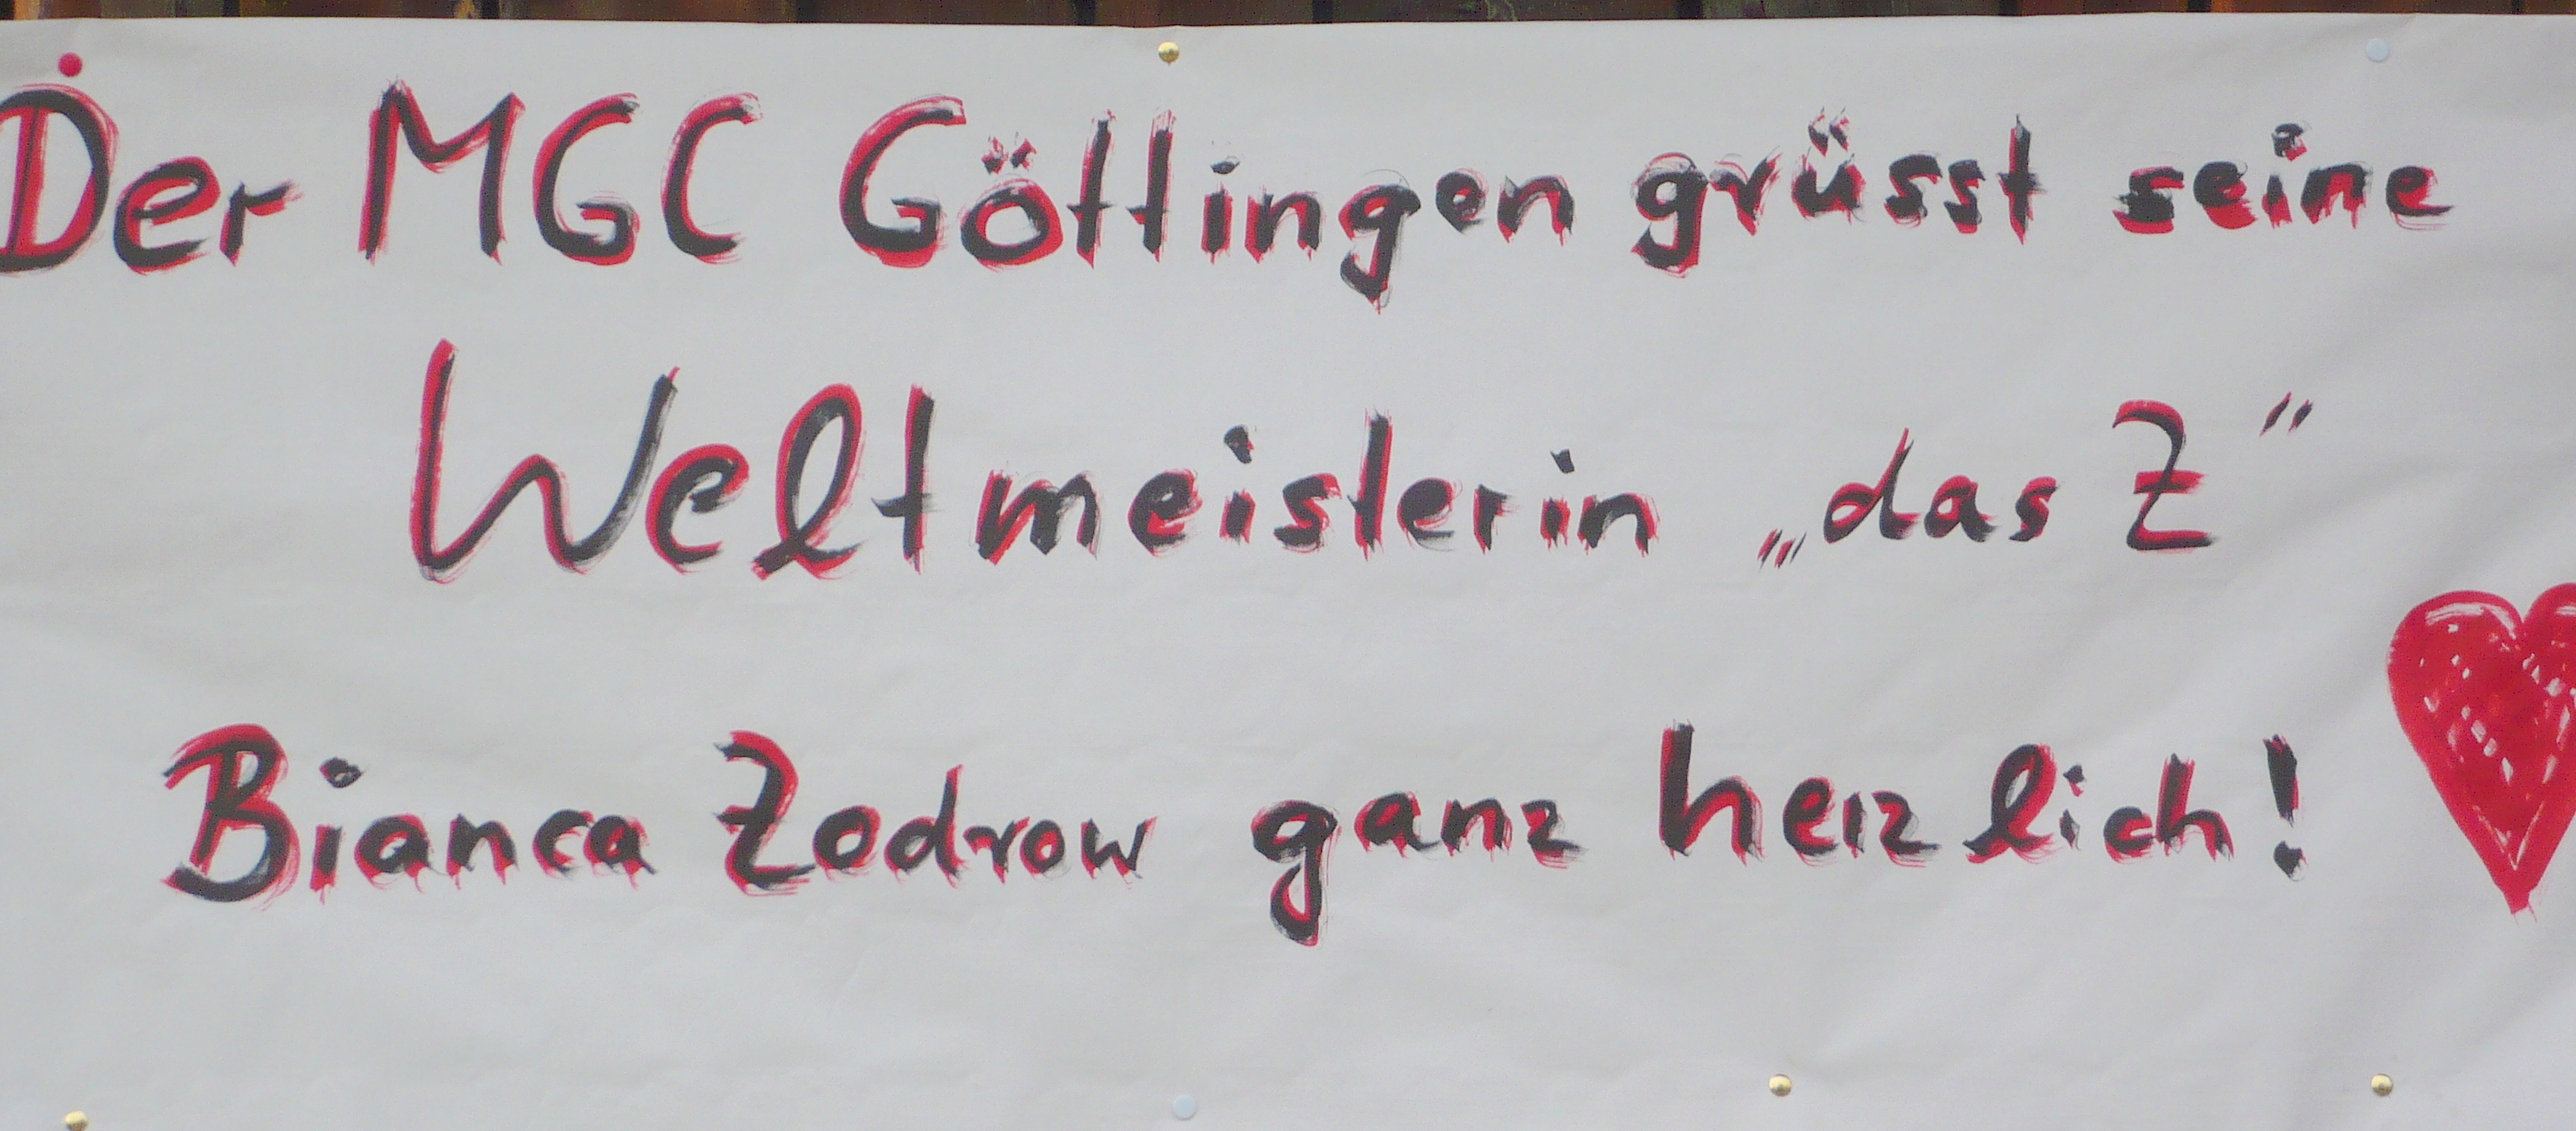 Der MGC Göttingen grüsst seine
Weltmeisterin „das Z“
Bianca Zodrow ganz herzlich!